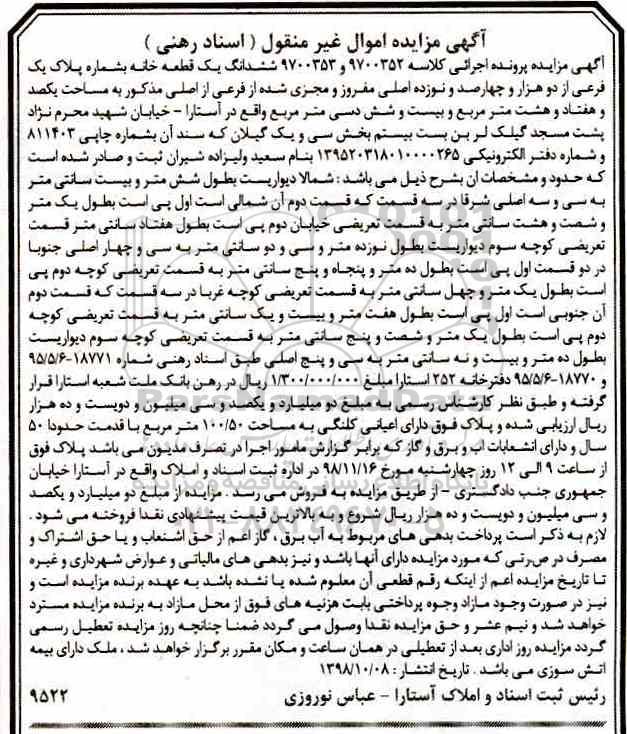 آگهی مزایده اموال غیر منقول ( اسناد رهنی )
آگهی مزایده پرونده اجرائی کلاسه ۹۷۰۰۳۵۲ و ۹۷۰۰۳۵۳ ششدانگ یک قطعه خانه بشماره پلاک یک
فرعی از دو هزار و چهارصد و نوزده اصلی مفروز و مجزی شده از فرعی از اصلی مذکور به مساحت یکصد
و هفتاد و هشت متر مربع و بیست و شش دسی متر مربع واقع در آستارا - خیابان شهید محرم نژاد
پشت مسجد گیلک لر بن بست بیستم بخش سی و یک گیلان که سند آن بشماره چاپی ۸۱۱۴۰۳
و شماره دفتر الکترونیکی ۱۳۹۵۲۰۳۱۸۰۱۰۰۰۰۲۶۵ بنام سعید ولیزاده شیران ثبت و صادر شده است
که حدود و مشخصات ان بشرح ذیل می باشد : شمالا دیواریست بطول شش متر و بیست سانتی متر
به سی و سه اصلی شرقا در سه قسمت که قسمت دوم آن شمالی است اول پی است بطول یک متر
و شصت و هشت سانتی متر به قسمت تعریضی خیابان دوم پی است بطول هفتاد سانتی متر قسمت
تعریضی کوچه سوم دیواریست بطول نوزده متر و سی و دو سانتی متر به سی و چهار اصلی جنوبا
در دو قسمت اول پی است بطول ده متر و پنجاه و پنج سانتی متر به قسمت تعریضی کوچه دوم پی
است بطول یک متر و چهل سانتی متر به قسمت تعریضی کوچه غربا در سه قسمت که قسمت دوم
آن جنوبی است اول پی است بطول هفت متر و بیست و یک سانتی متر به قسمت تعریضی کوچه
دوم پی است بطول یک متر و شصت و پنج سانتی متر به قسمت تعریضی کوچه سوم دیواریست
بطول ده متر و بیست و نه سانتی متر به سی و پنج اصلی طبق اسناد رهنی شماره ۱۸۷۷۱-۹۵/۵/۶
و ۱۸۷۷۰-۹۵/۵/۶ دفترخانه ۲۵۲ استارا مبلغ ۱/۳۰۰/۰۰۰/۰۰۰ ریال در رهن بانک ملت شعبه استارا قرار
گرفته و طبق نظر کارشناس رسمی به مبلغ دو میلیارد و یکصد و سی میلیون و دویست و ده هزار
ریال ارزیابی شده و پلاک فوق دارای اعیانی کلنگی به مساحت ۱۰۰/۵۰ متر مربع با قدمت حدودا ۵۰
سال و دارای انشعابات اب و برق و گاز که برابر گزارش مامور اجرا در تصرف مدیون می باشد پلاک فوق
از ساعت ۹ الی ۱۲ روز چهارشنبه مورخ ۹۸/۱۱/۱۶ در اداره ثبت اسناد و املاک واقع در آستارا خیابان
جمهوری جنب دادگستری - از طریق مزایده به فروش می رسد . مزایده از مبلغ دو میلیارد و یکصد
و سی میلیون و دویست و ده هزار ریال شروع و به بالاترین قیمت پیشنهادی نقدا فروخته می شود .
لازم به ذکر است پرداخت بدهی های مربوط به آب برق ، گاز اعم از حق اشنعاب و یا حق اشتراک و
مصرف در صرتی که مورد مزایده دارای آنها باشد و نیز بدهی های مالیاتی و عوارض شهرداری و غیره
تا تاریخ مزایده اعم از اینکه رقم قطعی آن معلوم شده یا نشده باشد به عهده برنده مزایده است و
نیز در صورت وجود مازاد وجوه پرداختی بابت هزنیه های فوق از محل مازاد به برنده مزایده مسترد
خواهد شد و نیم عشر و حق مزایده نقدا وصول می گردد ضمنا چنانچه روز مزایده تعطیل رسمی
گردد مزایده روز اداری بعد از تعطیلی در همان ساعت و مکان مقرر برگزار خواهد شد ، ملک دارای بیمه
اتش سوزی می باشد . تاریخ انتشار : ۱۳۹۸/۱۰/۰۸
رئیس ثبت اسناد و املاک آستارا - عباس نوروزی ۹۵۲۲
ParsNamadData
پایگاه اطلاع رسانی مناقصه و مزایده